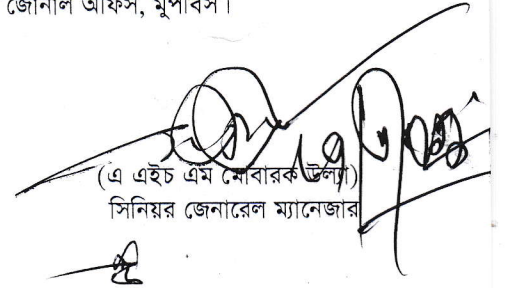 জোনাল অফিস, মুপাবিস।
(এ এইচ এম মোবারক উল্যা)
সিনিয়র জেনারেল ম্যানেজার